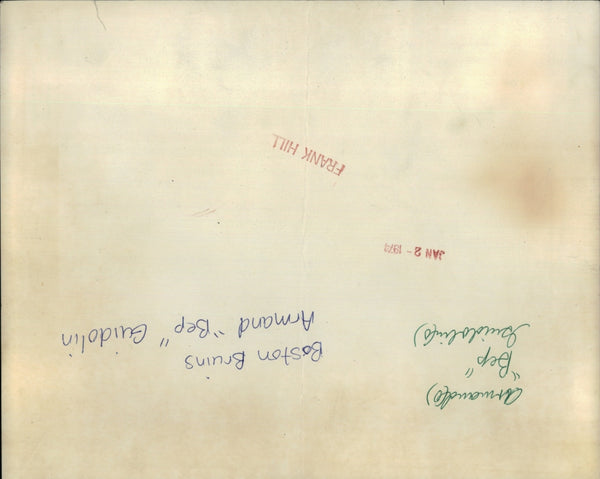 Armand(o)
"Bep"
Guidolin(o)
Boston Bruins
Armand "Bep" Guidolin
JAN 2 - 1974
FRANK HILL